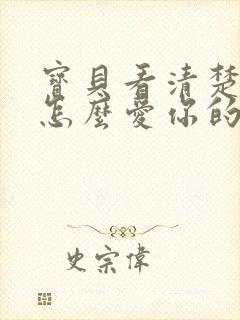 寶貝看清楚
怎麼愛你的
史宗偉